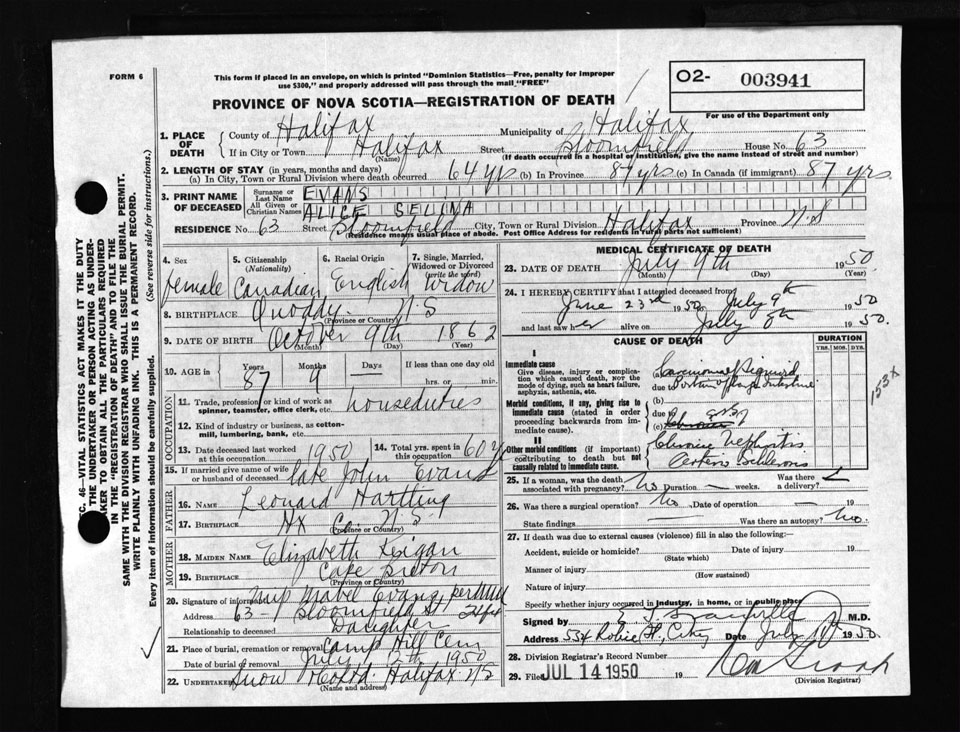 FORM 6
This form if placed in an envelope, on which is printed "Dominion Statistics—Free, penalty for improper
use $300," and properly addressed will pass through the mail "FREE"
O2- 003941
PROVINCE OF NOVA SCOTIA—REGISTRATION OF DEATH
For use of the Department only
1. PLACE OF DEATH
County of Halifax Municipality of Halifax
If in City or Town Halifax Street Bloomfield House No. 63
(Name) (If death occurred in a hospital or institution, give the name instead of street and number)
2. LENGTH OF STAY (in years, months and days)
(a) In City, Town or Rural Division where death occurred 64 yrs (b) In Province 87 yrs (c) In Canada (if immigrant) 87 yrs
3. PRINT NAME OF DECEASED
Surname or Last Name EVANS
All Given or Christian Names ALICE SELINA
RESIDENCE No. 63 Street Bloomfield City, Town or Rural Division Halifax Province N.S
(Residence means usual place of abode. Post Office Address for residents in rural parts not sufficient)
4. Sex Female
5. Citizenship (Nationality) Canadian
6. Racial Origin English
7. Single, Married, Widowed or Divorced (write the word) Widow
8. BIRTHPLACE Quoddy N.S
(Province or Country)
9. DATE OF BIRTH October 9th 1862
(Month) (Day) (Year)
10. AGE in Years Months Days If less than one day old
87 9 hrs. or min.
OCCUPATION
11. Trade, profession or kind of work as spinner, teamster, office clerk, etc. houseduties
12. Kind of industry or business, as cotton-mill, lumbering, bank, etc.
13. Date deceased last worked at this occupation 1950
14. Total yrs. spent in this occupation 60 y
15. If married give name of wife or husband of deceased late John Evans
FATHER
16. NAME Leonard Hartling
17. BIRTHPLACE Hx Co. N.S
(Province or Country)
MOTHER
18. MAIDEN NAME Elizabeth
19. BIRTHPLACE Cape Breton
(Province or Country)
20. Signature of informant Mabel Evans
Address 63 Bloomfield St
Relationship to deceased Daughter
21. Place of burial, cremation or removal Camp Hill Cem
Date of burial or removal July 1950
22. Undertaker Snow & Co Ltd. Halifax N.S
(Name and address)
MEDICAL CERTIFICATE OF DEATH
23. DATE OF DEATH July 9th 1950.
(Month) (Day) (Year)
24. I HEREBY CERTIFY that I attended deceased from
June 23rd 1950 to July 9th 1950
and last saw her alive on July 8th 1950.
CAUSE OF DEATH DURATION
YRS. MOS. DYS.
I
Immediate cause
Give disease, injury or complication which caused death, NOT the mode of dying, such as heart failure, asphyxia, asthenia, etc.
(a) Carcinoma of Sigmoid
due to portion of large Intestine
Morbid conditions, if any, giving rise to immediate cause (stated in order proceeding backwards from immediate cause).
(b)
due to
(c)
153x
II
Other morbid conditions (if important) contributing to death but not causally related to immediate cause.
Chronic Nephritis
Arterio Sclerosis
25. If a woman, was the death associated with pregnancy? No Duration weeks. Was there a delivery?
26. Was there a surgical operation? No Date of operation 19
State findings Was there an autopsy? No.
27. If death was due to external causes (violence) fill in also the following:—
Accident, suicide or homicide? Date of injury 19
(State which)
Manner of injury
(How sustained)
Nature of injury
Specify whether injury occurred in industry, in home, or in public place
Signed by M.D.
Address 554 Robie St, City Date July 10 1950.
28. Division Registrar's Record Number
29. Filed JUL 14 1950 19
(Division Registrar)
SEC. 46—VITAL STATISTICS ACT MAKES IT THE DUTY
OF THE UNDERTAKER OR PERSON ACTING AS UNDER-
TAKER TO OBTAIN ALL THE PARTICULARS REQUIRED
IN THE "REGISTRATION OF DEATH" AND TO FILE THE
SAME WITH THE DIVISION REGISTRAR WHO SHALL ISSUE THE BURIAL PERMIT.
WRITE PLAINLY WITH UNFADING INK. THIS IS A PERMANENT RECORD.
Every item of information should be carefully supplied. (See reverse side for instructions.)